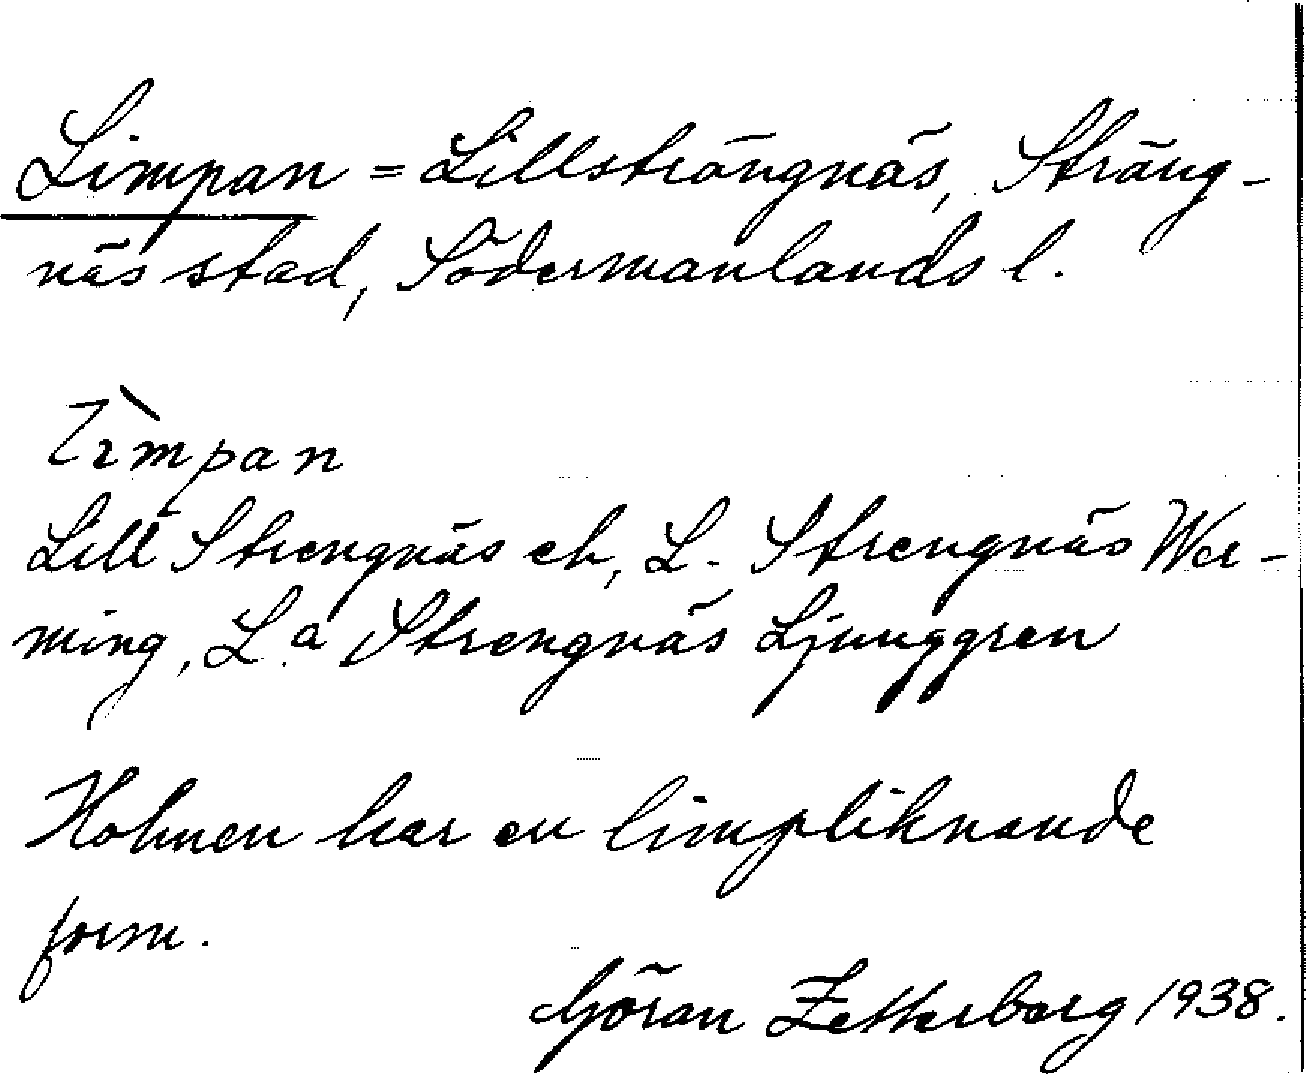 Limpan = Lillsträngnäs, Sträng-
näs stad, Södermanlands l.
lìmpan
Lill Strengnäs ek, L. Strengnäs Wer-
ming, L.a Strengnäs Ljunggren
Holmen har en limpliknande
form.
Göran Zetterberg 1938.